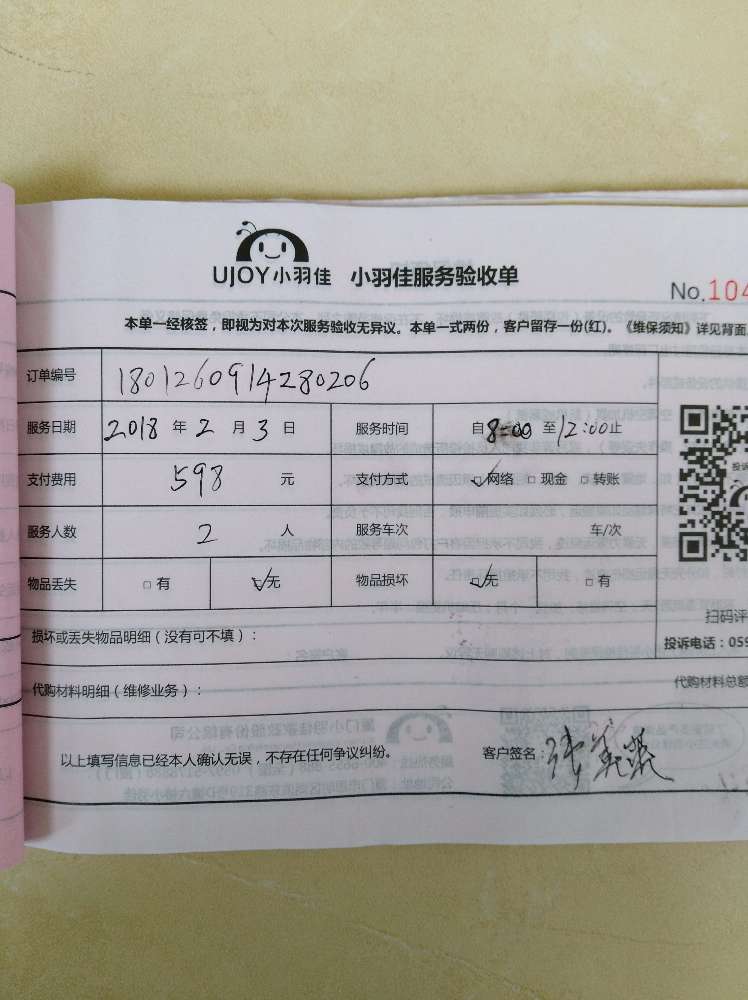 UJOY小羽佳 小羽佳服务验收单
No.104
本单一经核签，即视为对本次服务验收无异议。本单一式两份，客户留存一份(红)。《维保须知》详见背面
订单编号 1801260914280206
服务日期 2018 年 2 月 3 日 服务时间 自 8:00 至 12:00 止
支付费用 598 元 支付方式 ☑网络 □现金 □转账
服务人数 2 人 服务车次 车/次
物品丢失 □有 ☑无 物品损坏 ☑无 □有
扫码评
损坏或丢失物品明细（没有可不填）：
投诉电话：059
代购材料明细（维修业务）：
代购材料总额
以上填写信息已经本人确认无误，不存在任何争议纠纷。
客户签名：张